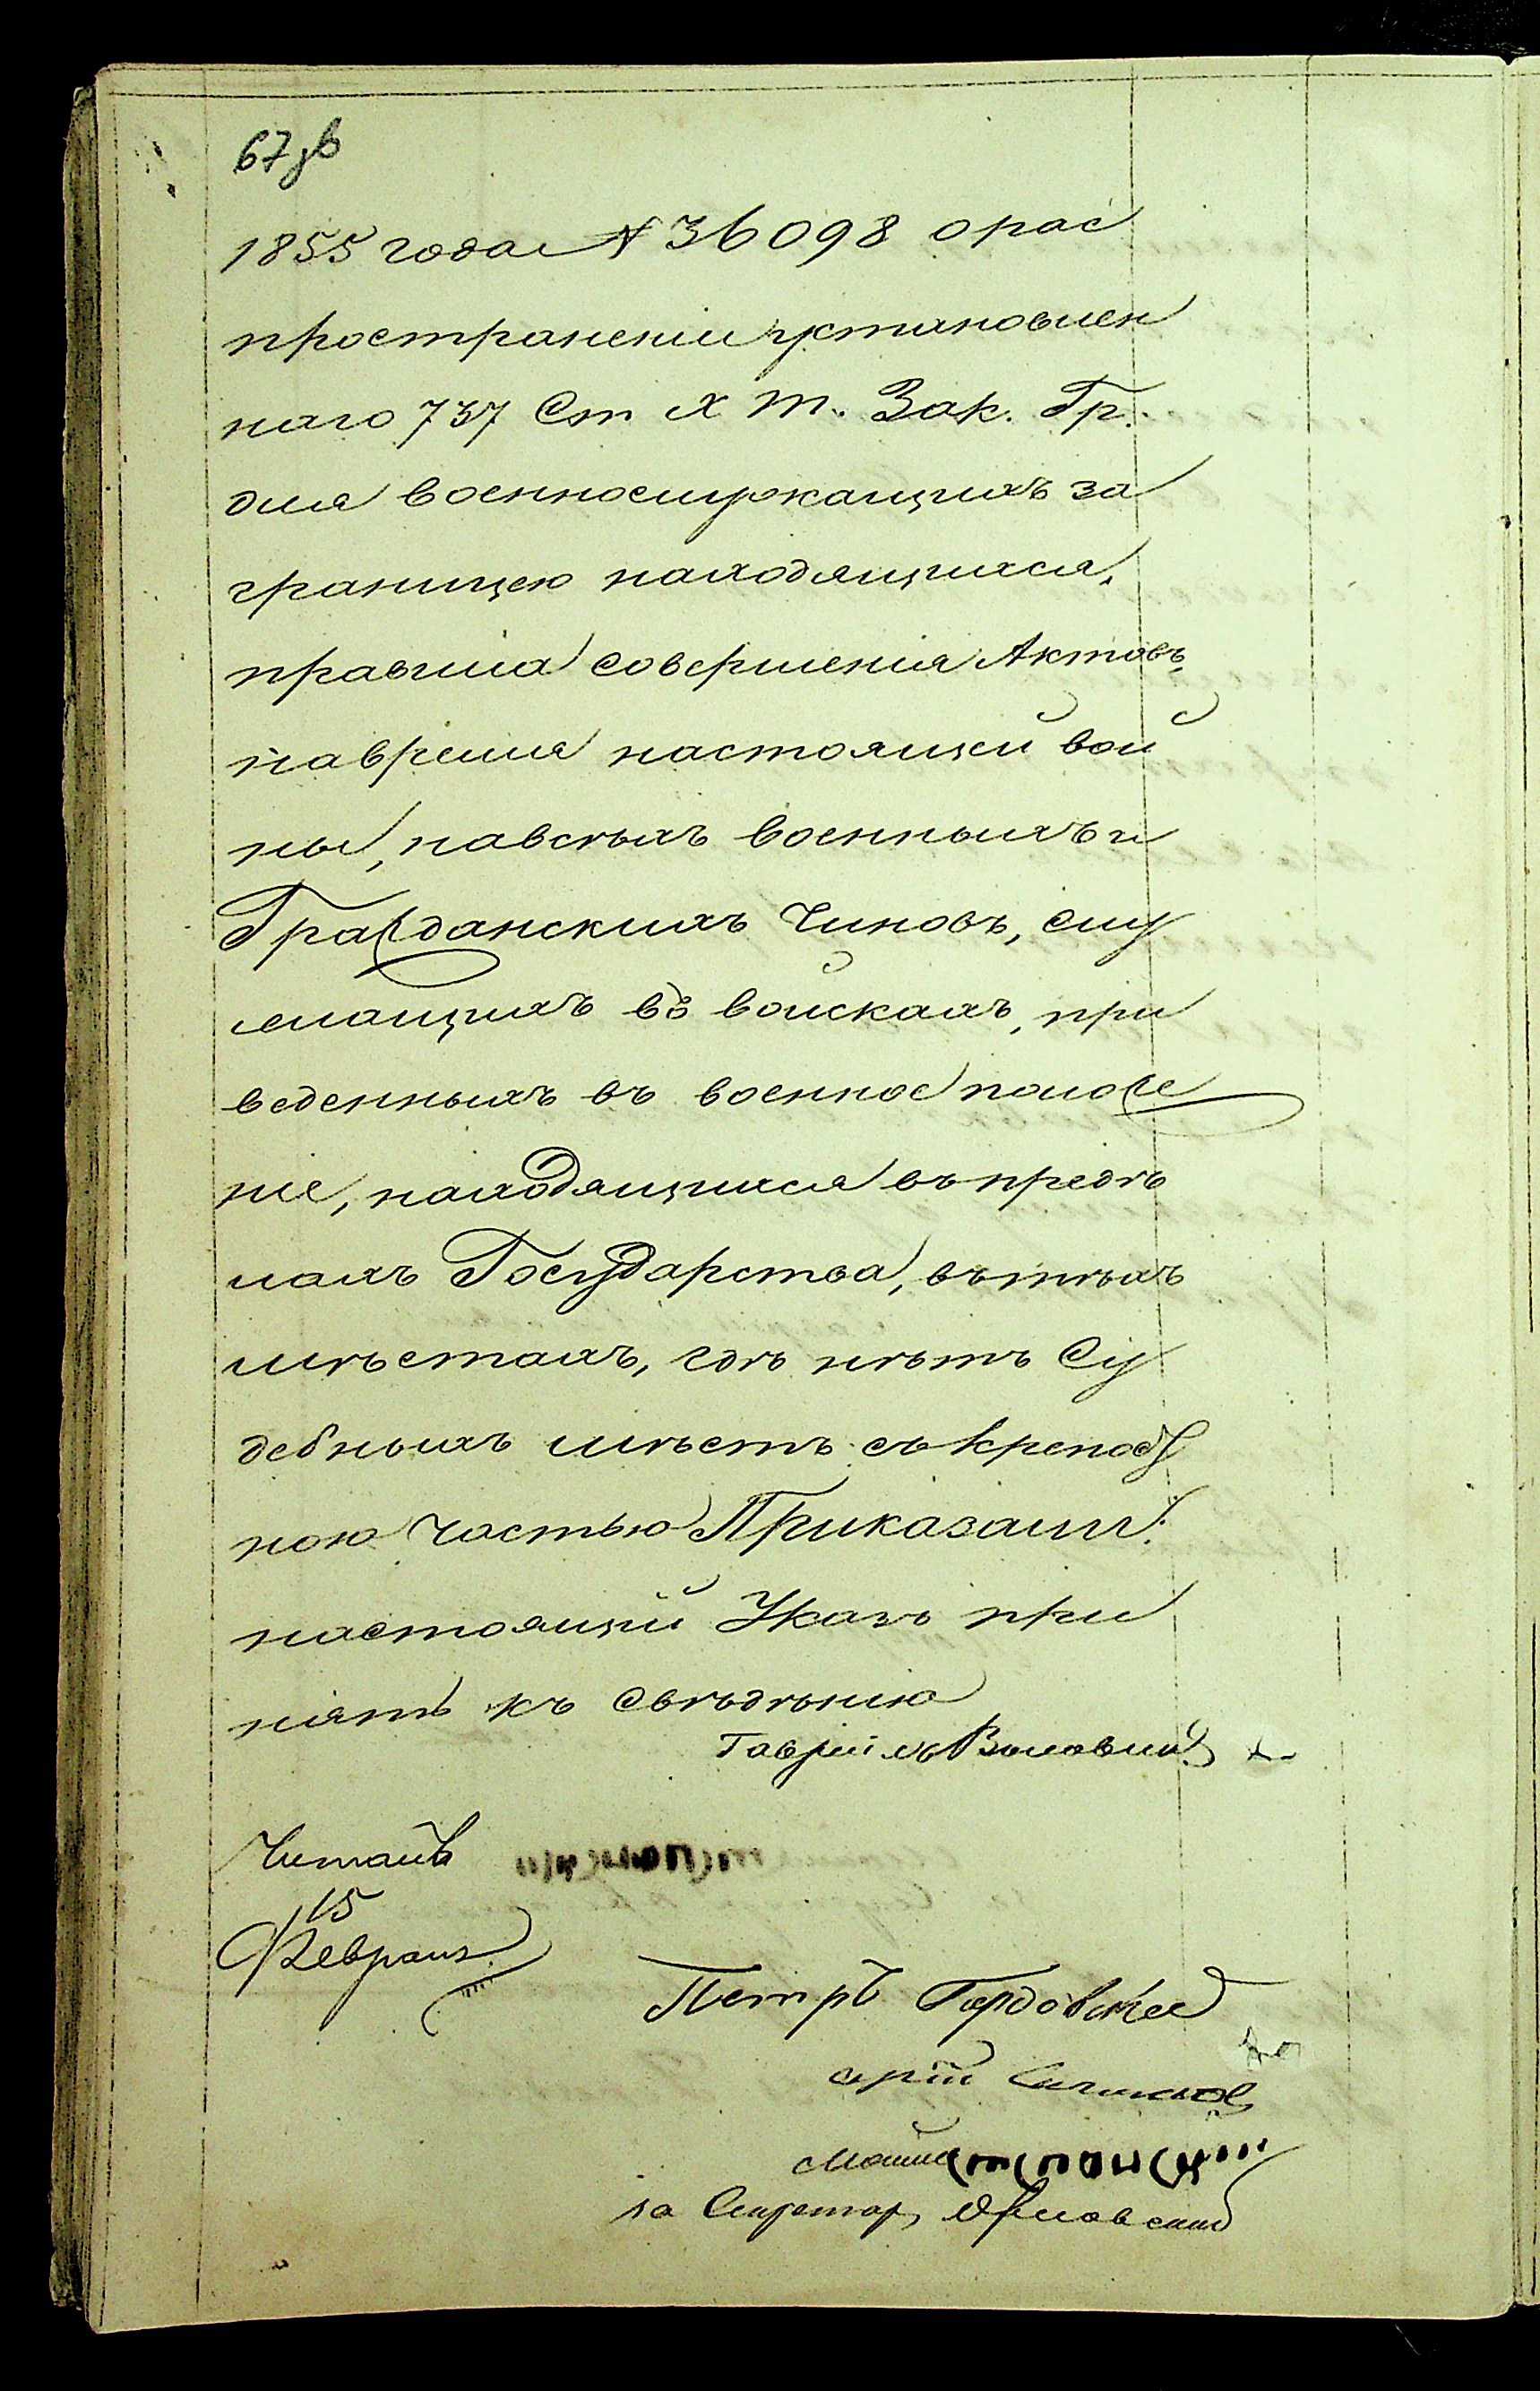 67 зв
1855 года № 36098 о рас
пространеніи установлен
наго 737 Ст X т. Зак. Гр.
для военнослужащихъ за
границею находящихся,
правила совершенія Актовъ,
навремя настоящей вой
ны, навсѣхъ военныхъ и
Гражданскихъ Чиновъ, слу
жащихъ въ войскахъ, при
веденныхъ въ военное положе
ніе, находящихся въ предѣ
лахъ Государства, въ тѣхъ
мѣстахъ, гдѣ нѣтъ Су
дебныхъ мѣстъ съ крепост
ною частью Приказали:
настоящій Указъ при
нять къ свѣдѣнію
Гавріилъ
Читалъ
15
Февраля
Петръ
за Секретаря